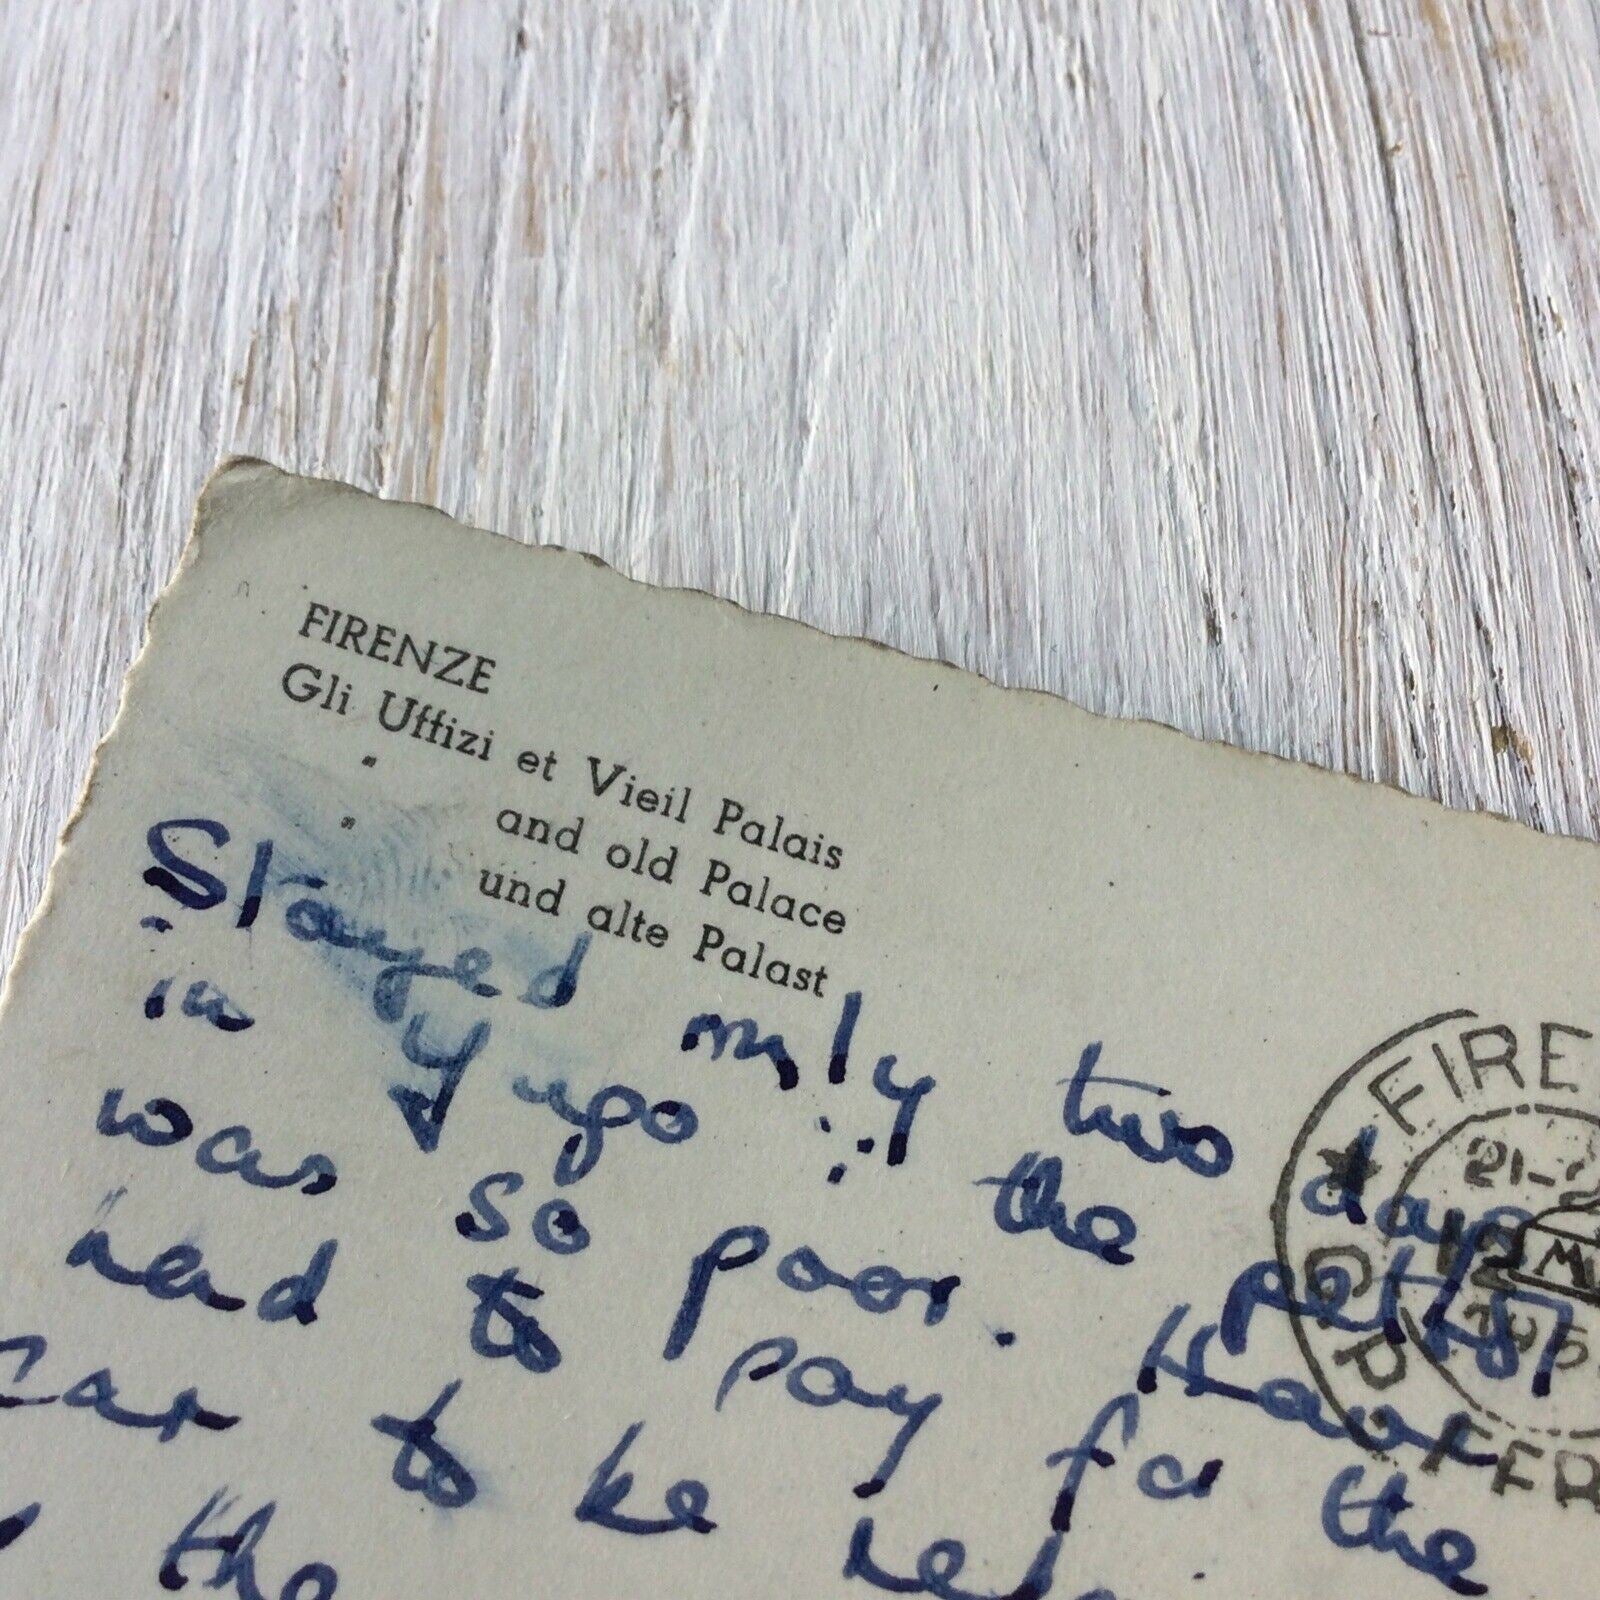 FIRENZE
Gli Uffizi et Vieil Palais
" and old Palace
" und alte Palast
Stayed only two days
in Yugo : the petrol
was so poor. Have
had to pay for the
car to be
the
FIRE
21-
12
195
FER